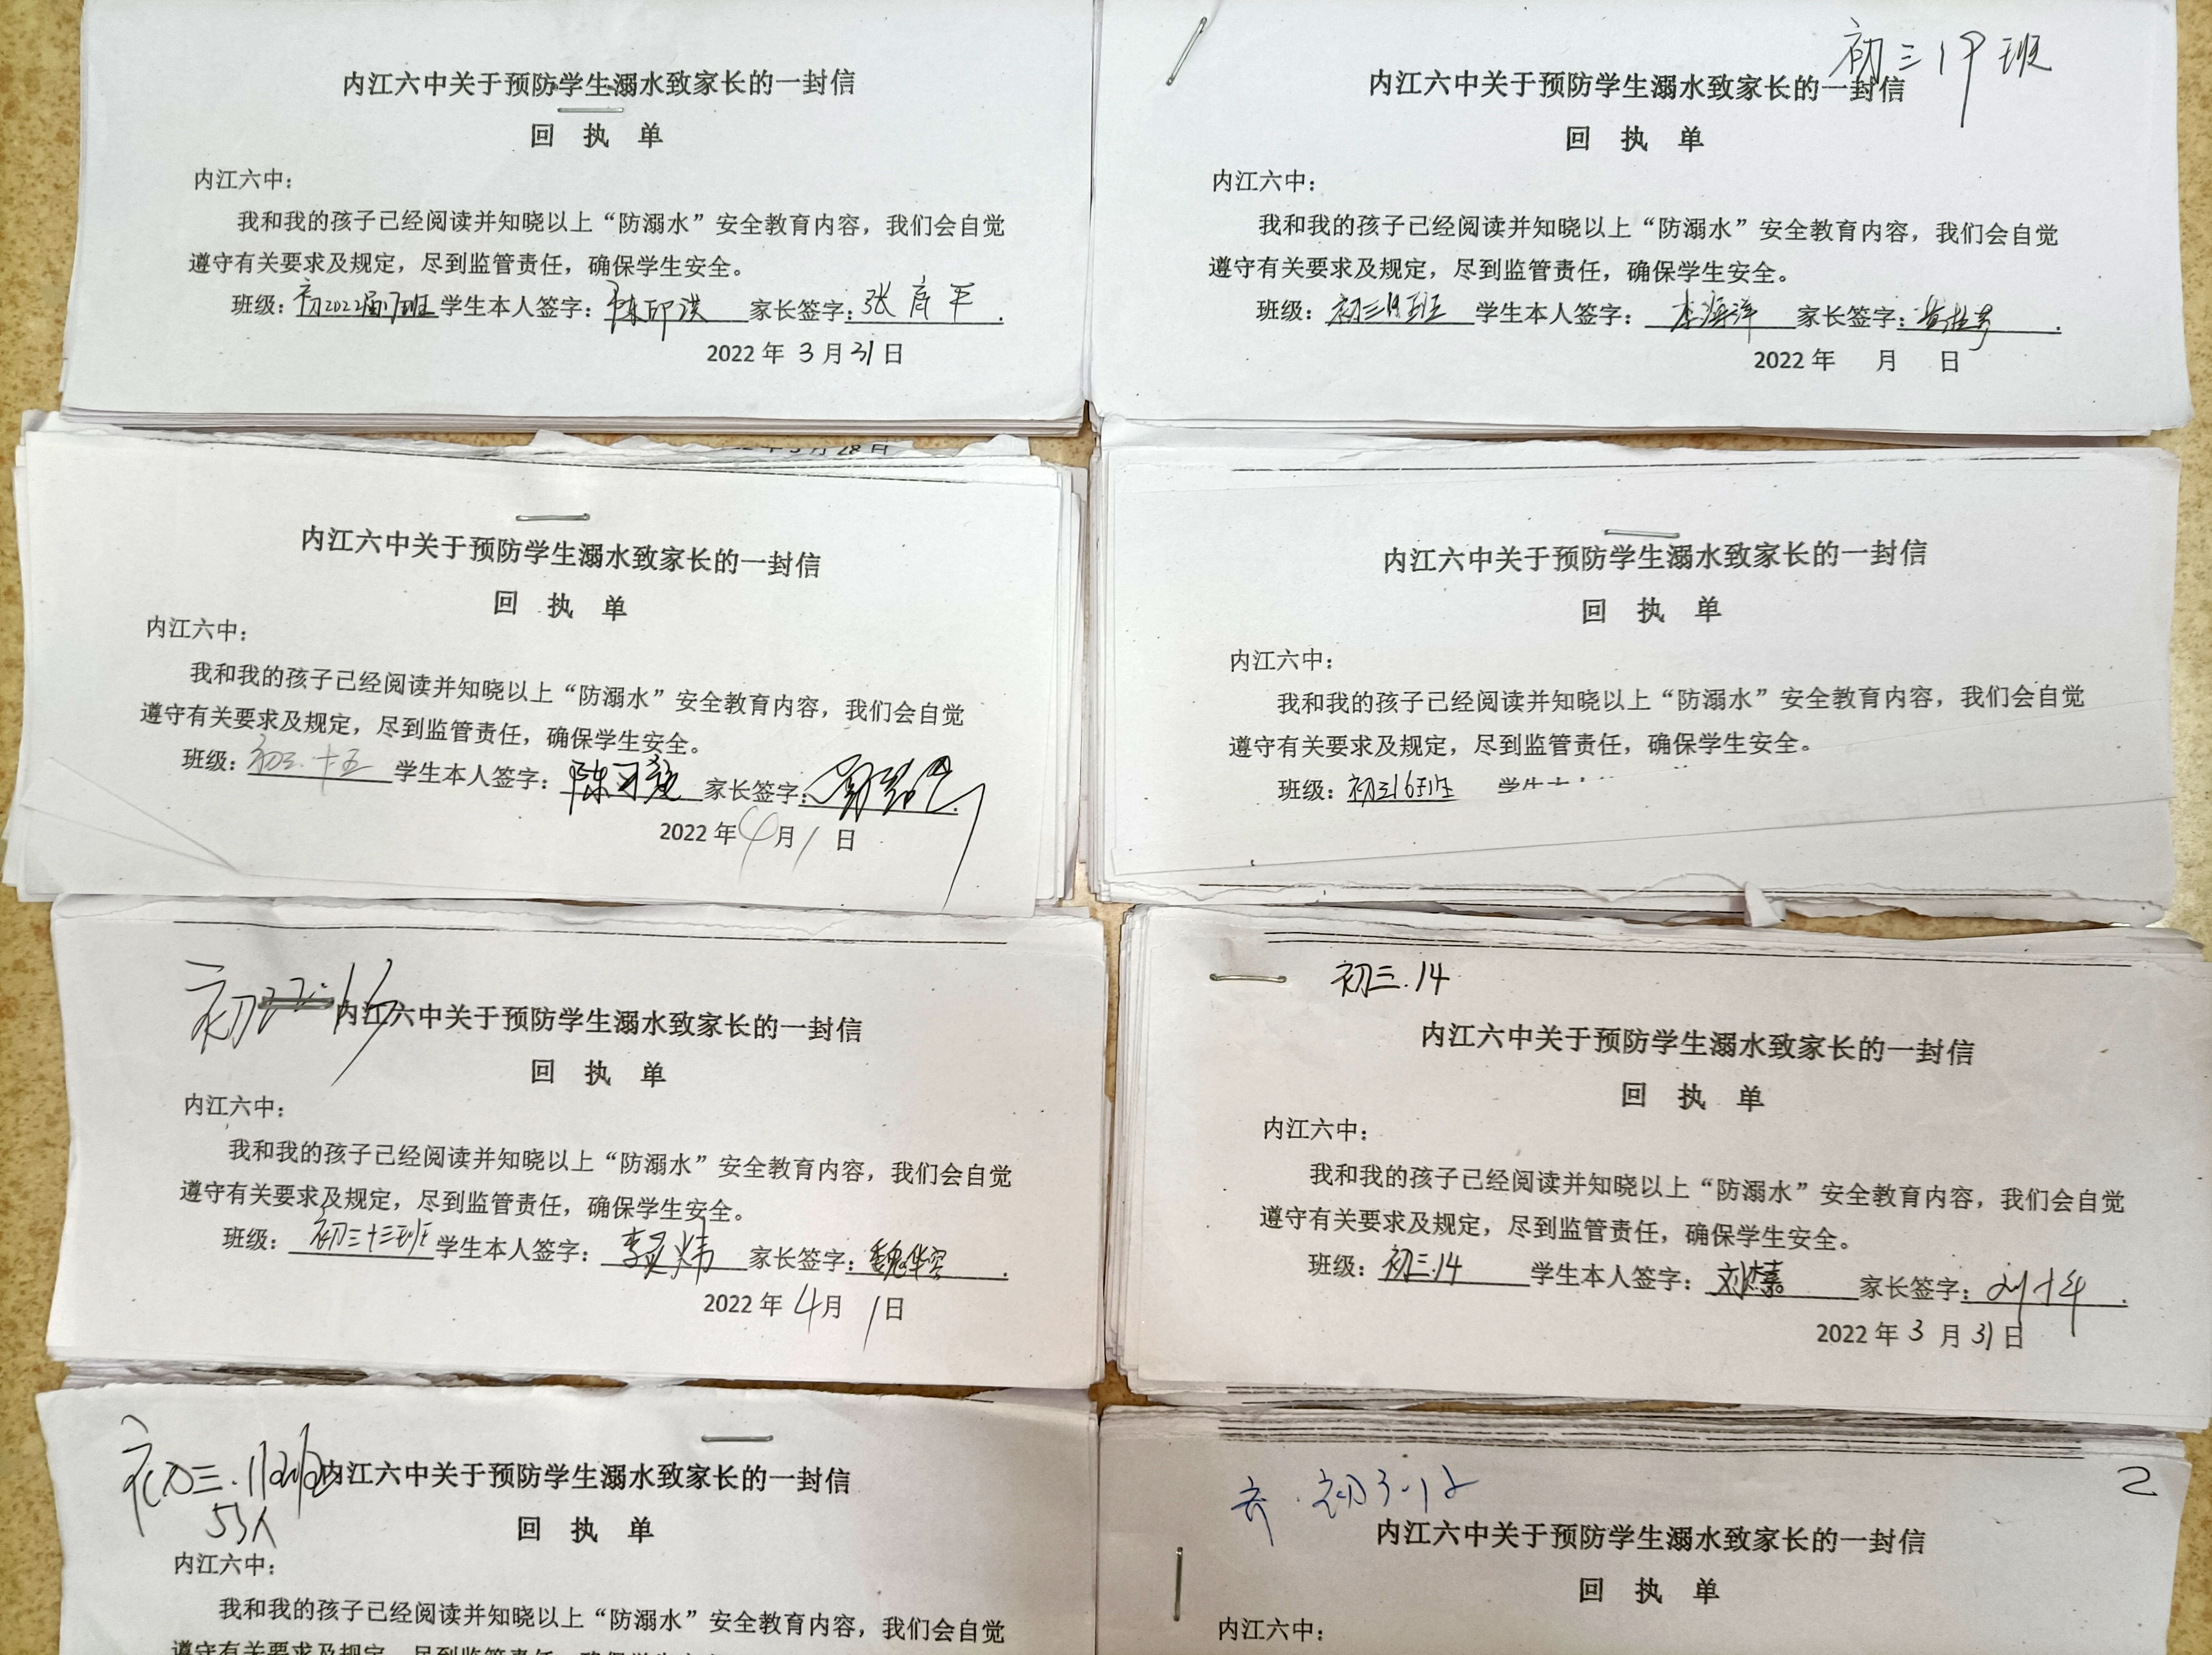 内江六中关于预防学生溺水致家长的一封信
回 执 单
内江六中：
我和我的孩子已经阅读并知晓以上“防溺水”安全教育内容，我们会自觉
遵守有关要求及规定，尽到监管责任，确保学生安全。
班级：初2022届17班 学生本人签字：陈印淇 家长签字：张彦平.
2022 年 3 月 31 日
初三19班
内江六中关于预防学生溺水致家长的一封信
回 执 单
内江六中：
我和我的孩子已经阅读并知晓以上“防溺水”安全教育内容，我们会自觉
遵守有关要求及规定，尽到监管责任，确保学生安全。
班级：初三19班 学生本人签字：李海洋 家长签字：.
2022 年 月 日
28 日
内江六中关于预防学生溺水致家长的一封信
回 执 单
内江六中：
我和我的孩子已经阅读并知晓以上“防溺水”安全教育内容，我们会自觉
遵守有关要求及规定，尽到监管责任，确保学生安全。
班级：初三.十五 学生本人签字： 家长签字：.
2022 年 4 月 1 日
内江六中关于预防学生溺水致家长的一封信
回 执 单
内江六中：
我和我的孩子已经阅读并知晓以上“防溺水”安全教育内容，我们会自觉
遵守有关要求及规定，尽到监管责任，确保学生安全。
班级：初三16班
内江六中关于预防学生溺水致家长的一封信
回 执 单
内江六中：
我和我的孩子已经阅读并知晓以上“防溺水”安全教育内容，我们会自觉
遵守有关要求及规定，尽到监管责任，确保学生安全。
班级：初三十三班 学生本人签字： 家长签字：魏华容.
2022 年 4 月 1 日
初三.14
内江六中关于预防学生溺水致家长的一封信
回 执 单
内江六中：
我和我的孩子已经阅读并知晓以上“防溺水”安全教育内容，我们会自觉
遵守有关要求及规定，尽到监管责任，确保学生安全。
班级：初三.14 学生本人签字： 家长签字：.
2022 年 3 月 31 日
初三.11班
内江六中关于预防学生溺水致家长的一封信
53人
回 执 单
内江六中：
我和我的孩子已经阅读并知晓以上“防溺水”安全教育内容，我们会自觉
遵守有关要求及规定，尽到监管责任，确保学生
齐.初3.12
2
内江六中关于预防学生溺水致家长的一封信
回 执 单
内江六中：